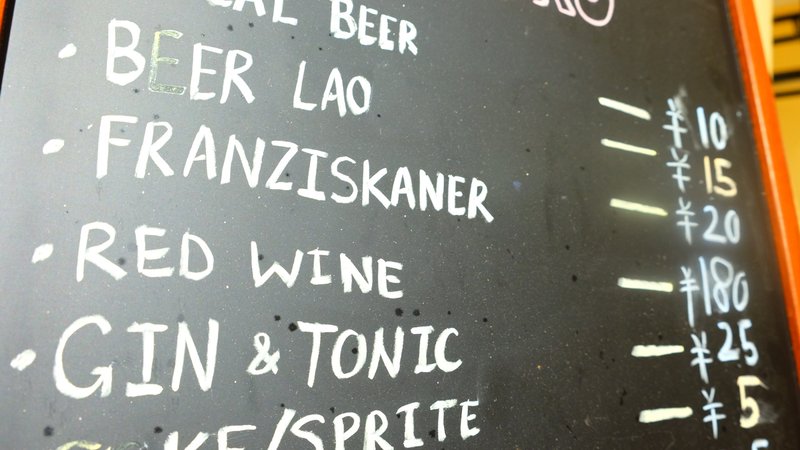 CAL BEER — ¥10
• BEER LAO — ¥15
• FRANZISKANER — ¥20
• RED WINE — ¥180
• GIN & TONIC — ¥25
COKE/SPRITE — ¥5